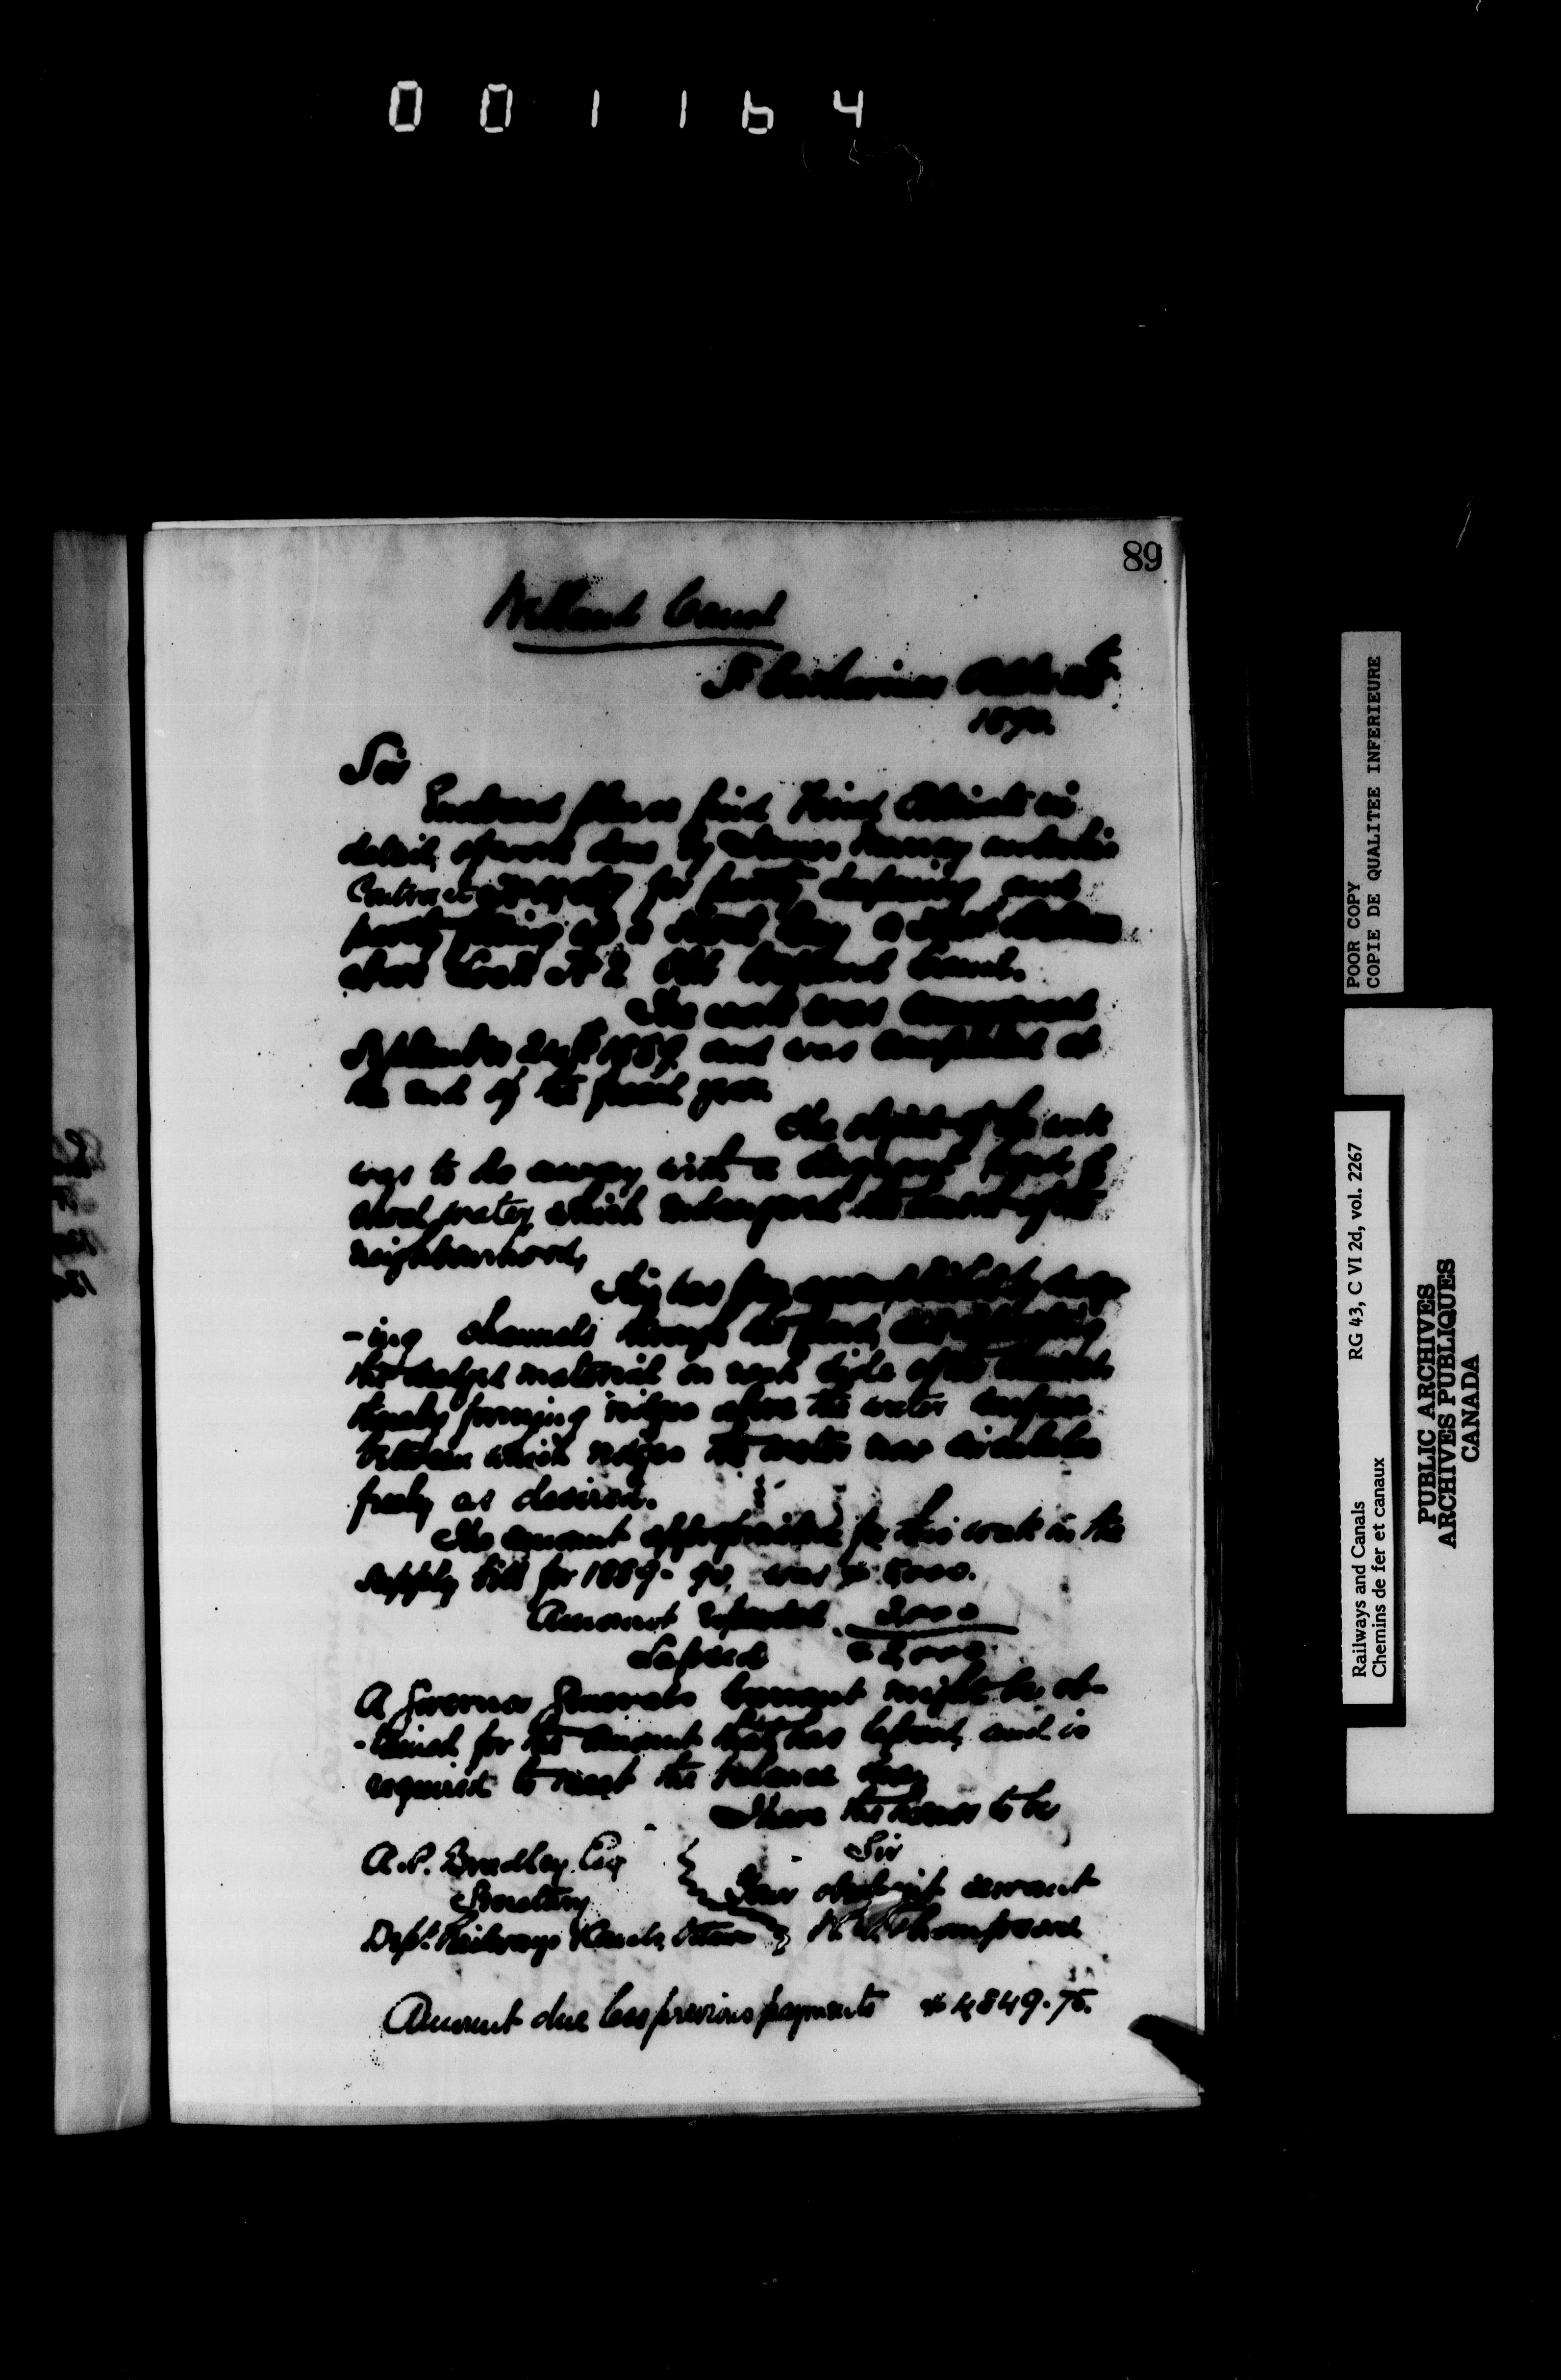 001164
89
Welland Canal
St Catharines
1890.
Sir
Enclosed please find Final Estimate in
detail, of work done by James Murray under his
Contract for partly deepening and
partly filling up a
above Lock No 2 Old Welland Canal.
The work was commenced
September 24th 1889 and was completed at
the end of the fiscal year
The object of the work
was to do away with a stagnant
water, which endangered the health of the
neighbourhood,
This has been accomplished by dredg-
-ing channels through the pond, and depositing
the dredged material on each side of the channels
thereby forming ridges above the water surface
between which ridges the water now circulates
freely as desired.
The amount appropriated for this work in the
supply bill for 1889-90, was $5000.
Amount expended
Lapsed
A Governor Generals Warrant might be ob-
-tained for the amount that has lapsed, and is
required to meet the balance due,
I have the honor to be
Sir
A.P. Bradley Esq
Your obedient servant
Secretary
Dept. Railways & Canals, Ottawa
Thompson
Amount due less previous payments $4,849.75.
POOR COPY
COPIE DE QUALITEE INFERIEURE
Railways and Canals RG 43, C VI 2d, vol. 2267
Chemins de fer et canaux
PUBLIC ARCHIVES
ARCHIVES PUBLIQUES
CANADA